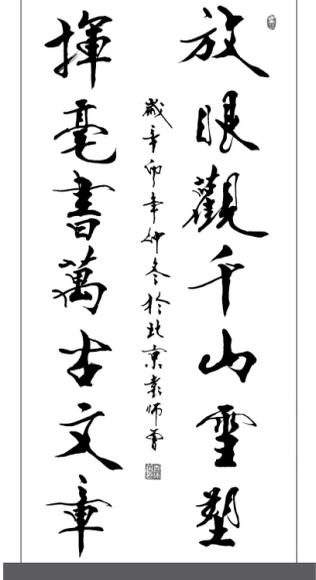 放眼觀千山雪塑
歲辛卯年仲冬於北京彰師曾
揮毫書萬古文章